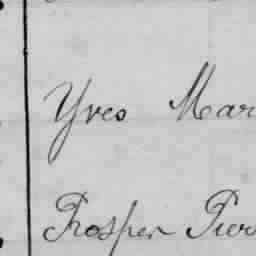 Yves Mar
Prosper Pier